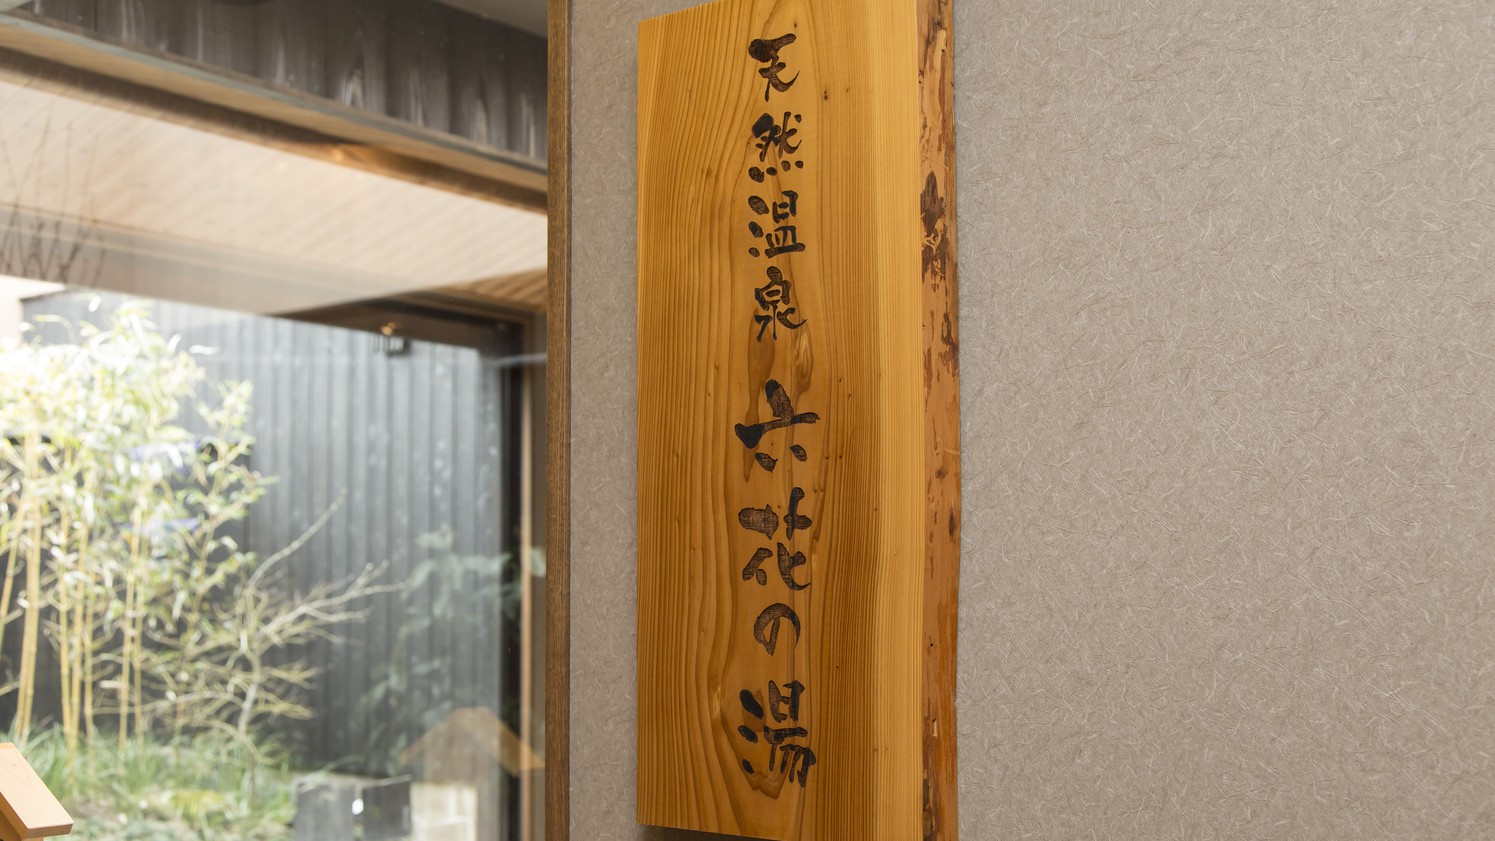 天然温泉 六花の湯